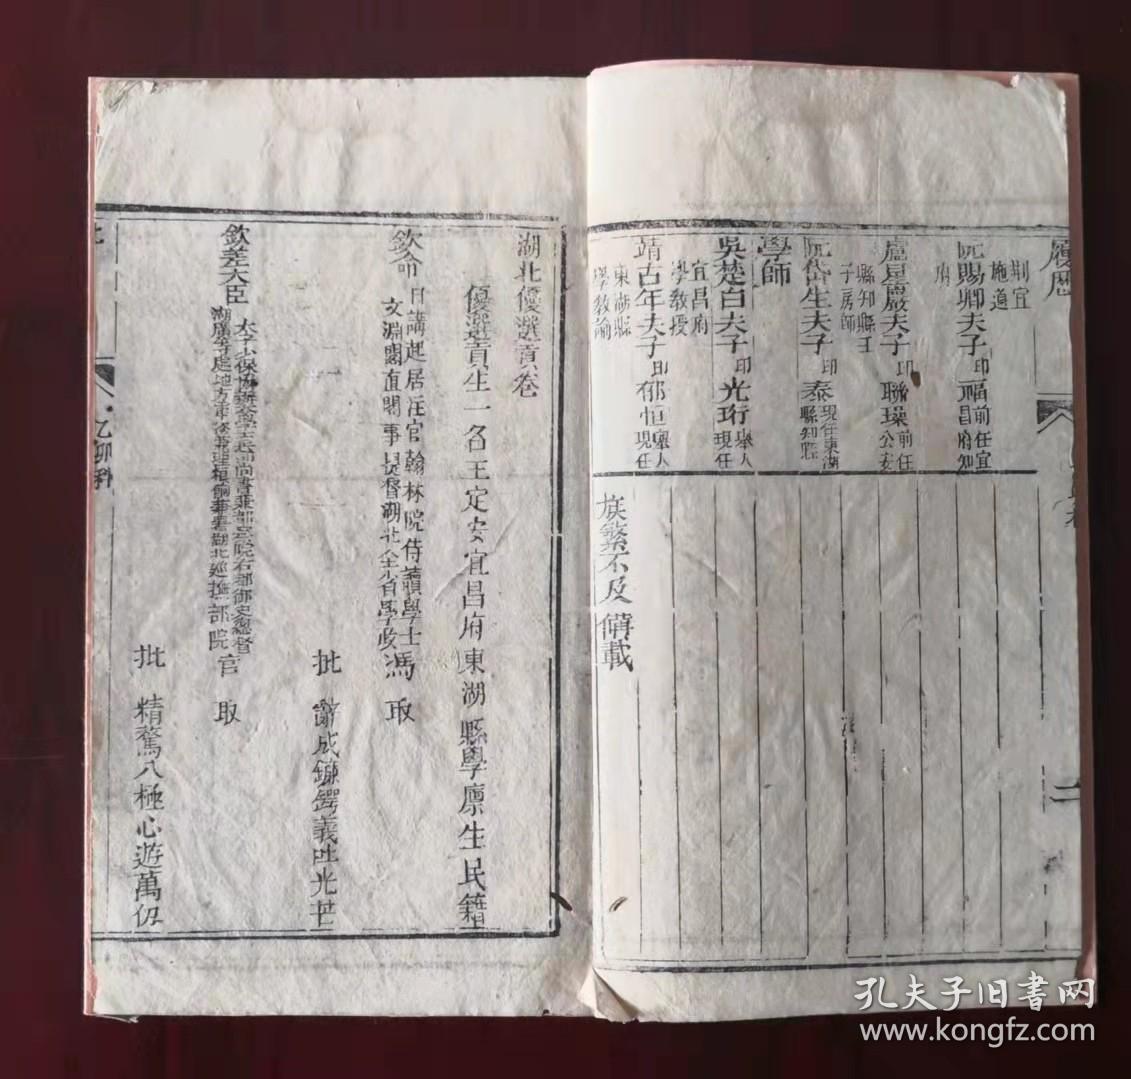 履歷
荆宜
施道
阮賜卿夫子印福前任宜
昌府知
府
盧星巖夫子印聯璪前任
公安
縣知縣王
子房師
阮岱生夫子印泰現任東湖
縣知縣
學師
吳楚白夫子印光珩舉人
現任
宜昌府
學教授
靖古年夫子印郁恒舉人
現任
東湖縣
學教諭
族繁不及備載
二
湖北優選貢卷
優選貢生一名王定安宜昌府東湖縣學廩生民籍
欽命日講起居注官翰林院侍讀學士
文淵閣直閣事提督湖北全省學政馮取
批 辭成鍊鍔義吐光芒
欽差大臣太子少保協辦大學士兵部尚書兼都察院右都御史總督
湖廣等處地方軍務兼理糧餉兼署湖北巡撫部院官取
批 精騖八極心遊萬仞
乙卯科
孔夫子旧書网
www.kongfz.com